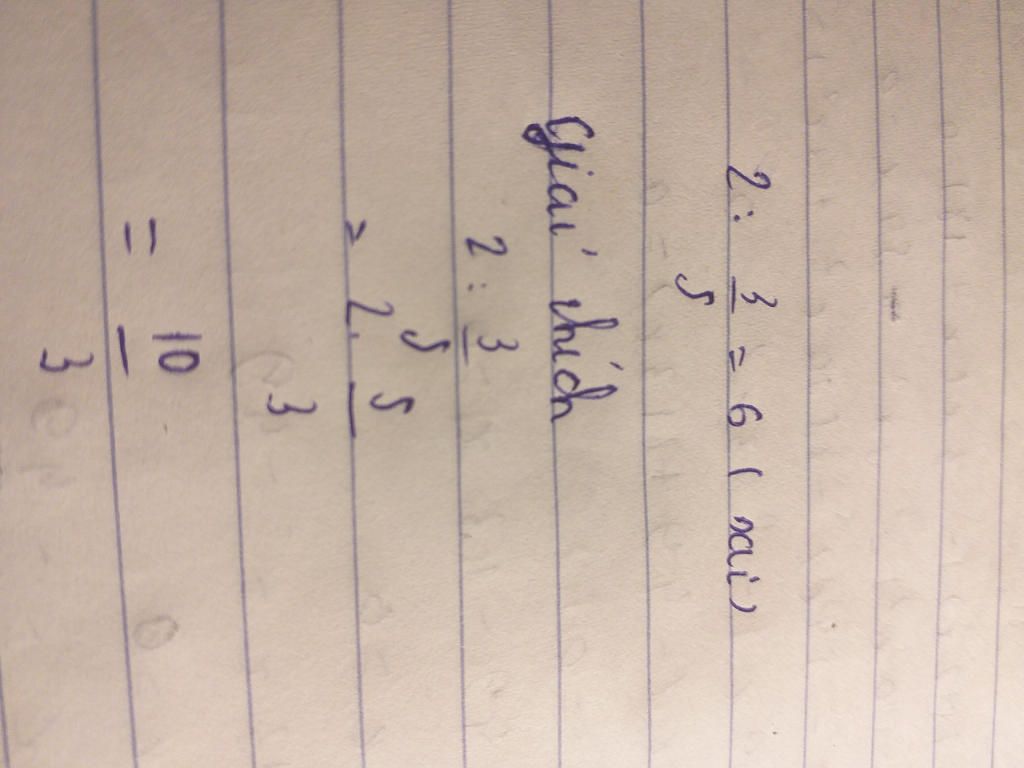 2 : 3/5 = 6 ( sai )
Giải thích
2 : 3/5
= 2 . 5/3
= 10/3